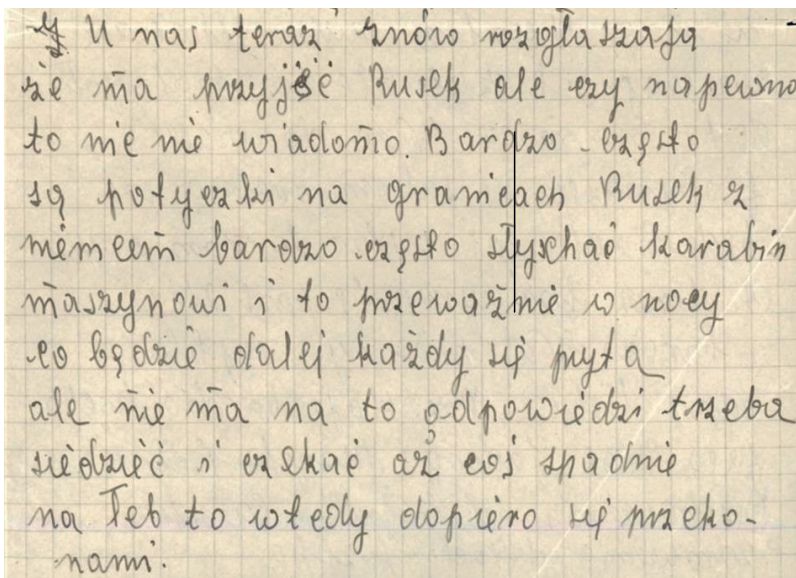 U nas teraz znów rozgłaszają
że ma przyjść Rusek ale czy napewno
to nic nie wiadomo. Bardzo często
są potyczki na granicach Rusek z
niemcem bardzo często słyschać karabin
maszynowi i to przeważnie w nocy
co będzie dalej każdy się pyta
ale nie ma na to odpowiedzi trzeba
siedzieć i czekać aż coś spadnie
na Łeb to wtedy dopiero się przeko-
nami.